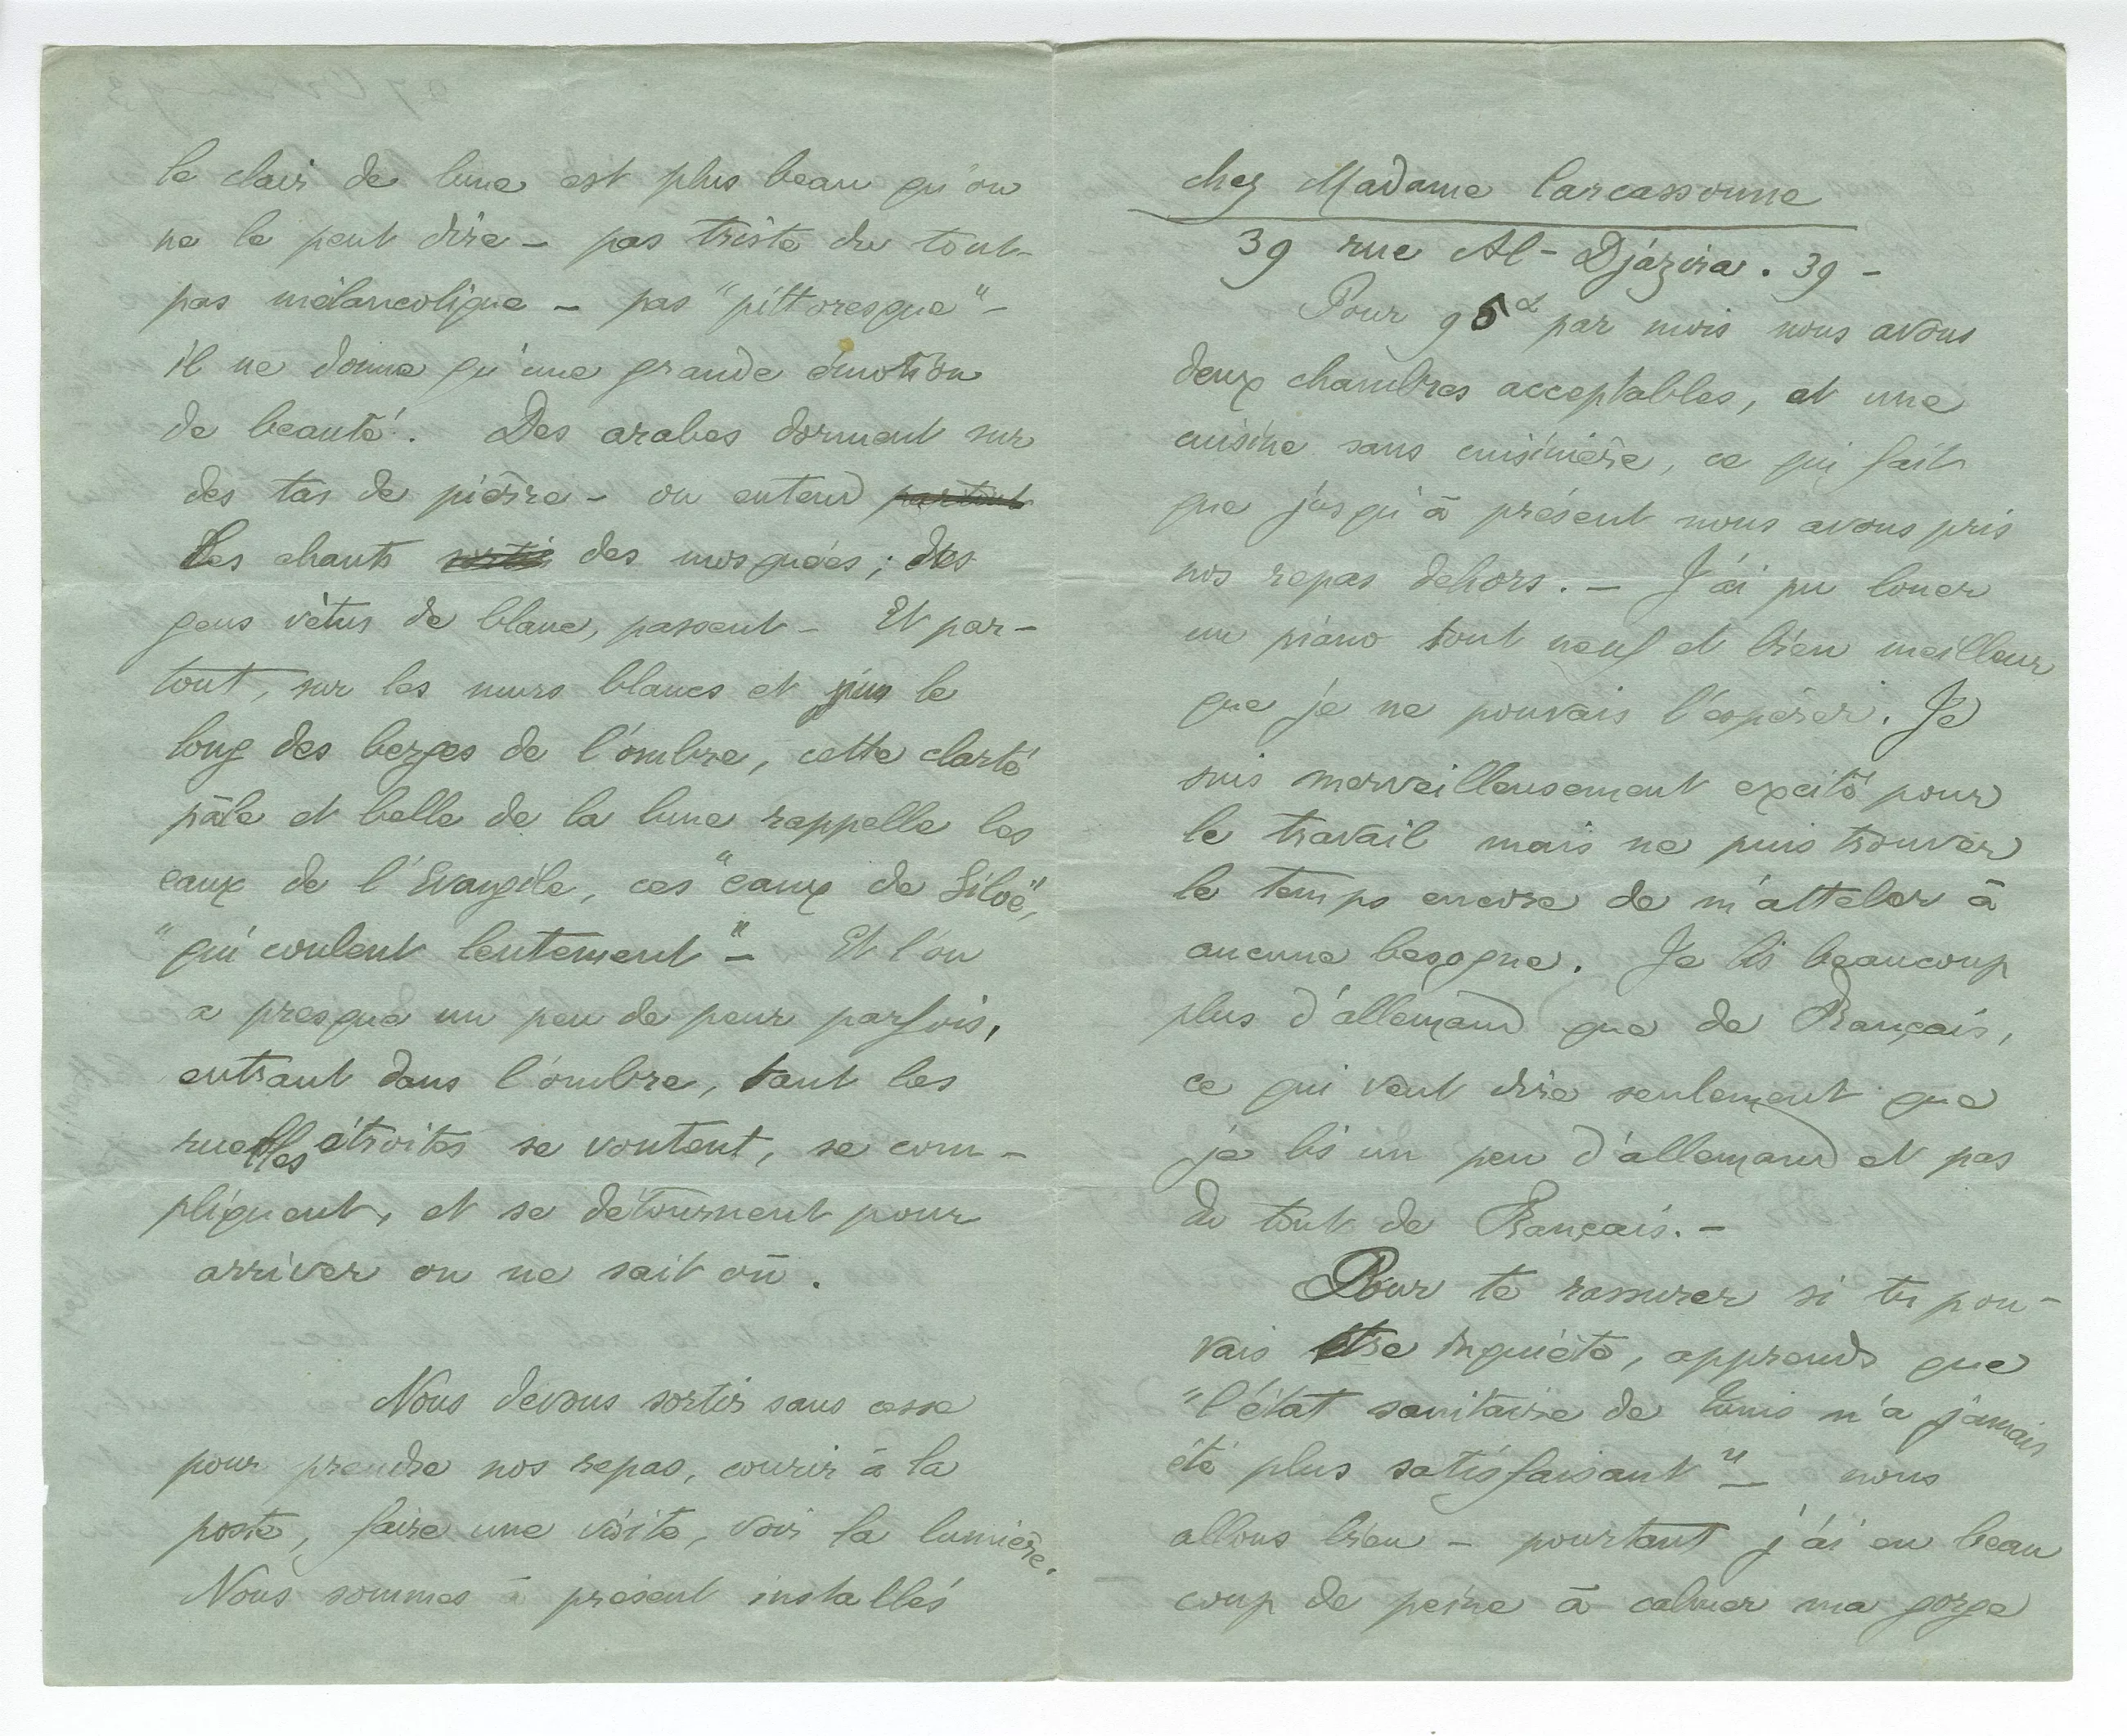 le clair de lune est plus beau qu'on
ne le peut dire – pas triste du tout –
pas mélancolique – pas "pittoresque" –
il ne donne qu'une grande émotion
de beauté. Des arabes dorment sur
des tas de pierre – on entend partout
Les chants sortis des mosquées ; des
gens vêtus de blanc, passent – Et par-
tout, sur les murs blancs et puis le
long des berges de l'ombre, cette clarté
pâle et belle de la lune rappelle les
eaux de l'Evangile, ces "eaux de Siloë",
"qui coulent lentement" – Et l'on
a presque un peu de peur parfois,
entrant dans l'ombre, tant les
ruelles étroites se voutent, se com-
pliquent, et se détournent pour
arriver on ne sait où.
Nous devons sortir sans cesse
pour prendre nos repas, courir à la
poste, faire une visite, voir la lumière.
Nous sommes à présent installés
chez Madame Carcassonne
39 rue Al-Djázira. 39 –
Pour 95 par mois nous avons
deux chambres acceptables, et une
cuisine sans cuisinière, ce qui fait
que jusqu'à présent nous avons pris
nos repas dehors. – J'ai pu louer
un piano tout neuf et bien meilleur
que je ne pouvais l'espérer. Je
suis merveilleusement excité pour
le travail mais ne puis trouver
le temps encore de m'atteler à
aucune besogne. Je lis beaucoup
plus d'allemand que de Français,
ce qui veut dire seulement que
je lis un peu d'allemand et pas
du tout de Français. –
Pour te rassurer si tu pou-
vais être inquiète, apprends que
"l'état sanitaire de Tunis n'a jamais
été plus satisfaisant" – nous
allons bien – pourtant j'ai eu beau
coup de peine à calmer ma gorge